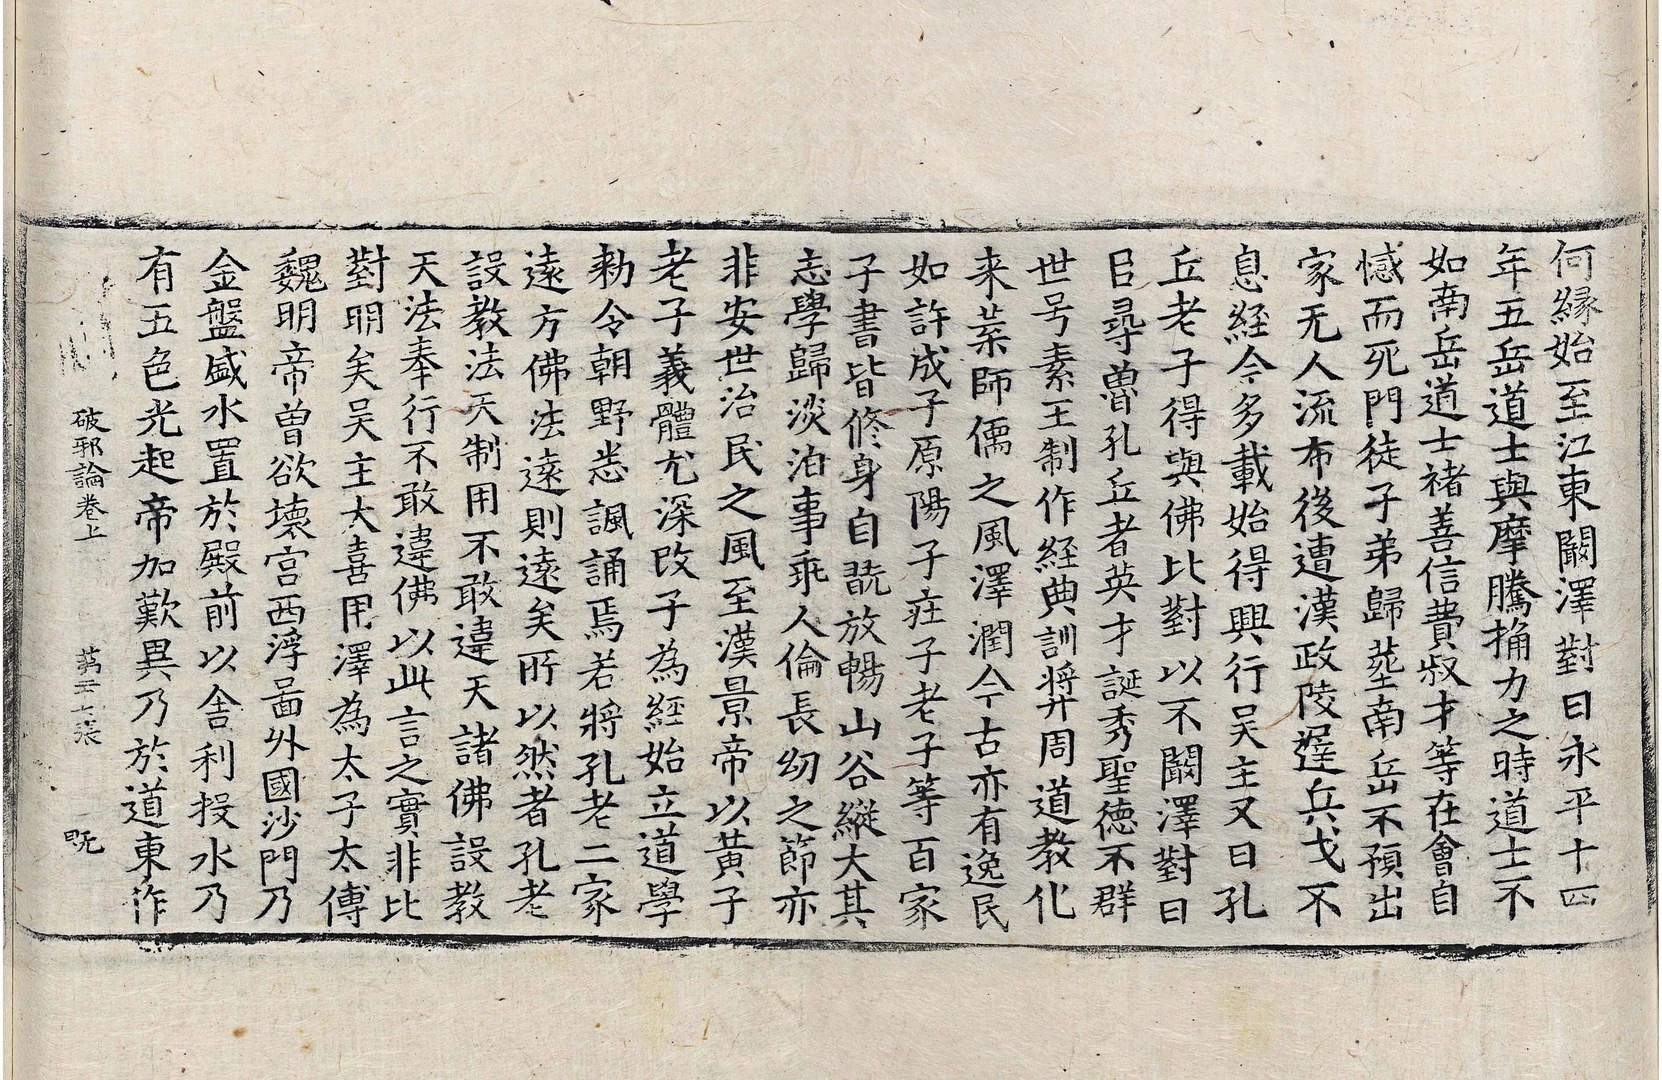 何縁始至江東闞澤對曰永平十四
年五岳道士與摩騰捔力之時道士不
如南岳道士褚善信費叔才等在會自
憾而死門徒子弟歸葬南岳不預出
家无人流布後遭漢政陵遅兵戈不
息経今多載始得興行吴主又曰孔
丘老子得與佛比對以不闞澤對曰
臣尋魯孔丘者英才誕秀聖德不群
世号素王制作経典訓将弉周道教化
来葉師儒之風澤潤今古亦有逸民
如許成子原陽子疘子老子等百家
子書皆修身自翫放暢山谷縱大其
志學歸淡泊事乖人倫長幼之節亦
非安世治民之風至漢景帝以黄子
老子義體尤深改子為経始立道學
勑令朝野悉諷誦焉若將孔老二家
逺方佛法逺則逺矣所以然者孔老
設教法天制用不敢違天諸佛設教
天法奉行不敢違佛以此言之實非比
對明矣吴主大喜用澤為太子太傅
魏明帝曽欲壊宫西浮啚外國沙門乃
金盤盛水置於殿前以舎利投水乃
有五色光起帝加歎異乃於道東作
破邪論卷上 苐 七张 既